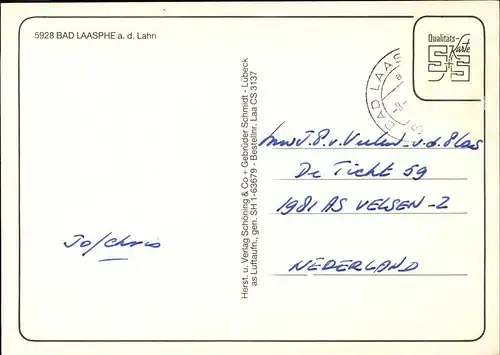 5928 BAD LAASPHE a. d. Lahn
Qualitäts-
Karte
BAD LAAS
De Ticht 59
1981 AS VELSEN-Z
NEDERLAND
Jo/Chris
Herst. u. Verlag Schöning & Co + Gebrüder Schmidt - Lübeck
as Luftaufn., gen. SH 1-63679 - Bestellnr. Laa CS 3137